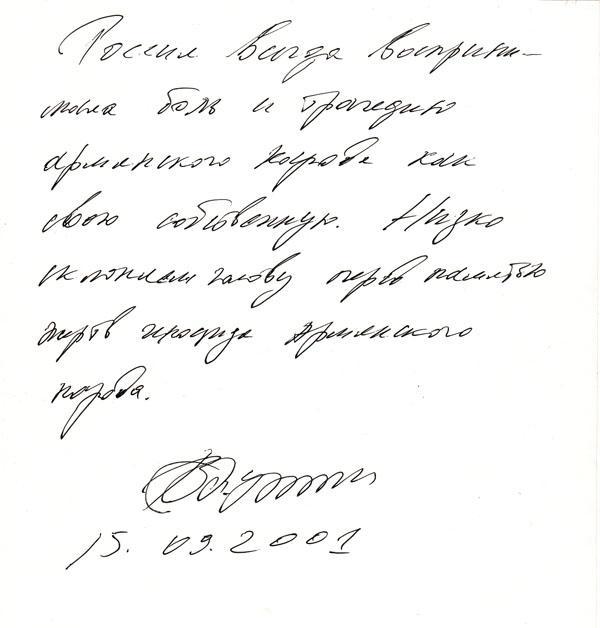 Россия всегда восприни-
мала боль и трагедию
армянского народа как
свою собственную. Низко
склоняем голову перед памятью
жертв геноцида Армянского
народа.
15. 09. 2001